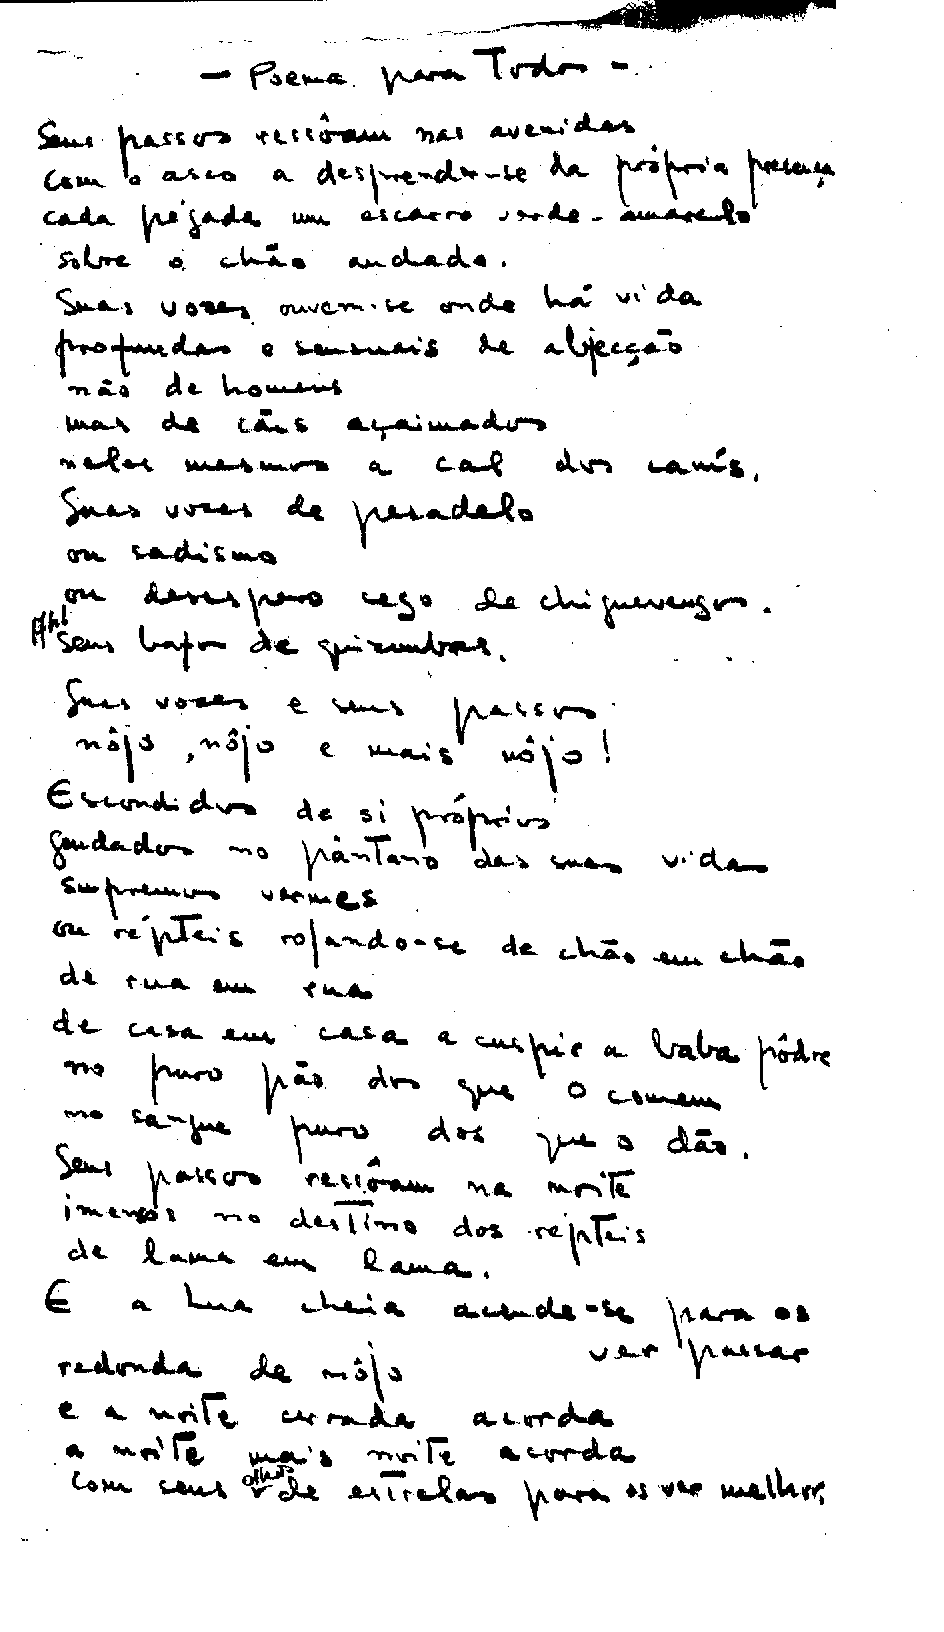 - Poema para Todos -
Seus passos ressôam nas avenidas
com o asco a desprender-se da própria presença
cada pégada um escarro verde-amarelo
sobre o chão andado.
Suas vozes ouvem-se onde há vida
profundas e sensuais de abjecção
não de homens
mas de cães açaimados
neles mesmos a cal dos canís.
Suas vozes de pesadelo
ou sadismo
ou desespero cego de chiguevengos.
Seus bafos de quizumbas.
Suas vozes e seus passos
nôjo, nôjo e mais nôjo!
Escondidos de si próprios
no pântano das suas vidas
supremos vermes
ou répteis rojando-se de chão em chão
de rua em rua
de casa em casa a cuspir a baba pôdre
no puro pão dos que o comem
no sangue puro dos que o dão.
Seus passos ressôam na noite
imensos no destino dos répteis
de lama em lama.
E a lua cheia acende-se para os
ver passar
redonda de nôjo
e a noite cerrada acorda
a noite mais noite acorda
com seus olhos de estrelas para os ver melhor.